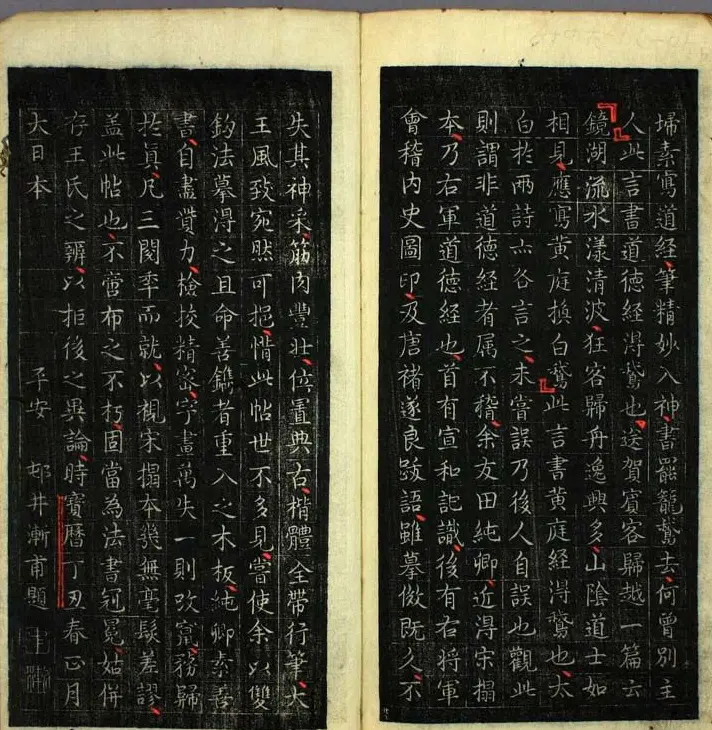 埽素寫道經筆精妙入神書罷籠鵞去何曾別主
人此言書道德經淂鵞也送賀賓客歸越一篇云
鏡湖流水漾清波狂客歸舟逸興多山陰道士如
相見應寫黄庭換白鵞此言書黄庭経淂鵞也太
白於兩詩亦各言之未嘗誤乃後人自誤也觀此
則謂非道德經者属不稽余友田純卿近淂宋搨
本乃右軍道德經也首有宣和記識後有右将軍
會稽内史圖印及唐褚遂良跋語雖摹倣既久不
失其神采筋肉豐壯位置典古楷體全帶行筆大
王風致宛然可挹惜此帖世不多見嘗使余以雙
鈎法摹淂之且命善鐫者重入之木板純卿素善
書自盡貲力檢挍精密字畫萬失一則改竄務歸
於眞凡三閲季而就以視宋搨本幾無毫髮差謬
盖此帖也不啻布之不朽固當為法書冠冕姑併
存王氏之辨以拒後之異論時寶曆丁丑春正月
大日本　平安　邨井漸甫題